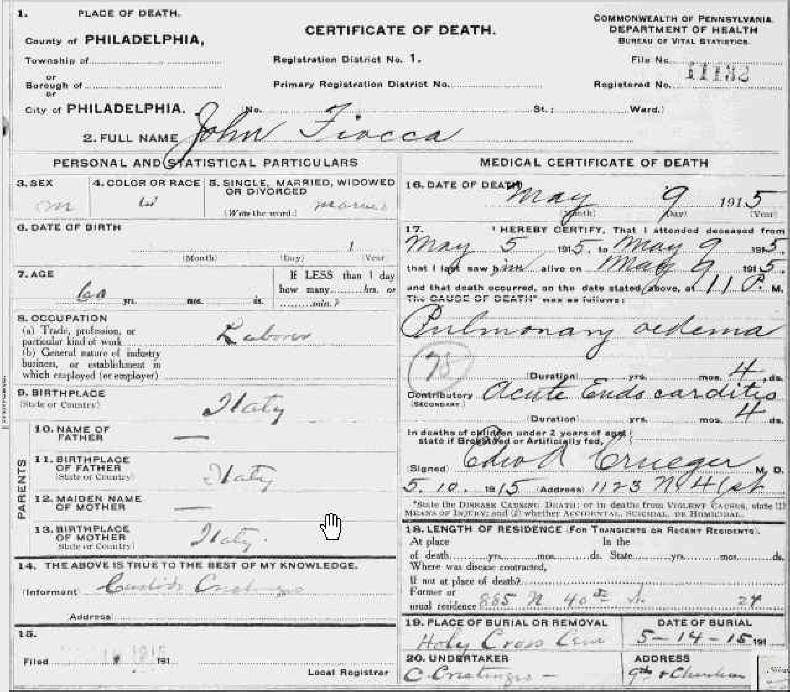 1. PLACE OF DEATH.
County of PHILADELPHIA,
Township of
or
Borough of
or
City of PHILADELPHIA.
CERTIFICATE OF DEATH.
Registration District No. 1.
Primary Registration District No.
No. St.; Ward.)
COMMONWEALTH OF PENNSYLVANIA.
DEPARTMENT OF HEALTH
BUREAU OF VITAL STATISTICS.
File No.
Registered No. 11132
2. FULL NAME John Fiocca
PERSONAL AND STATISTICAL PARTICULARS
3. SEX
m
4. COLOR OR RACE
W
5. SINGLE, MARRIED, WIDOWED
OR DIVORCED
(Write the word.) married
6. DATE OF BIRTH
1
(Month) (Day) (Year)
7. AGE
60 yrs. mos. ds.
If LESS than 1 day
how many hrs. or
min.?
8. OCCUPATION
(a) Trade, profession, or
particular kind of work Laborer
(b) General nature of industry
business, or establishment in
which employed (or employer)
9. BIRTHPLACE
(State or Country) Italy
PARENTS
10. NAME OF
FATHER —
11. BIRTHPLACE
OF FATHER
(State or Country) Italy
12. MAIDEN NAME
OF MOTHER —
13. BIRTHPLACE
OF MOTHER
(State or Country) Italy.
14. THE ABOVE IS TRUE TO THE BEST OF MY KNOWLEDGE.
(Informant)
(Address)
15.
Filed 191
Local Registrar
MEDICAL CERTIFICATE OF DEATH
16. DATE OF DEATH
May 9 1915
(Month) (Day) (Year)
17. I HEREBY CERTIFY, That I attended deceased from
May 5 1915, to May 9 1915,
that I last saw him alive on May 9 1915.
and that death occurred, on the date stated above, at 11 P. M.
The CAUSE OF DEATH* was as follows:
Pulmonary oedema
78
(Duration) yrs. mos. 4 ds.
Contributory Acute Endocarditis
(SECONDARY)
(Duration) yrs. mos. 4 ds.
In deaths of children under 2 years of age,
state if Breastfed or Artificially fed,
(Signed) Crueger M. D.
5. 10. 1915 (Address) 1123 N 41 st
*State the DISEASE CAUSING DEATH; or in deaths from VIOLENT CAUSES, state (1)
MEANS OF INJURY; and (2) whether ACCIDENTAL, SUICIDAL, or HOMICIDAL.
18. LENGTH OF RESIDENCE (FOR TRANSIENTS OR RECENT RESIDENTS).
At place In the
of death yrs. mos. ds. State yrs. mos. ds.
Where was disease contracted,
If not at place of death?
Former or
usual residence 885 N 40th St. 24
19. PLACE OF BURIAL OR REMOVAL
Holy Cross Cem
DATE OF BURIAL
5-14-15 191
20. UNDERTAKER
ADDRESS
9th &